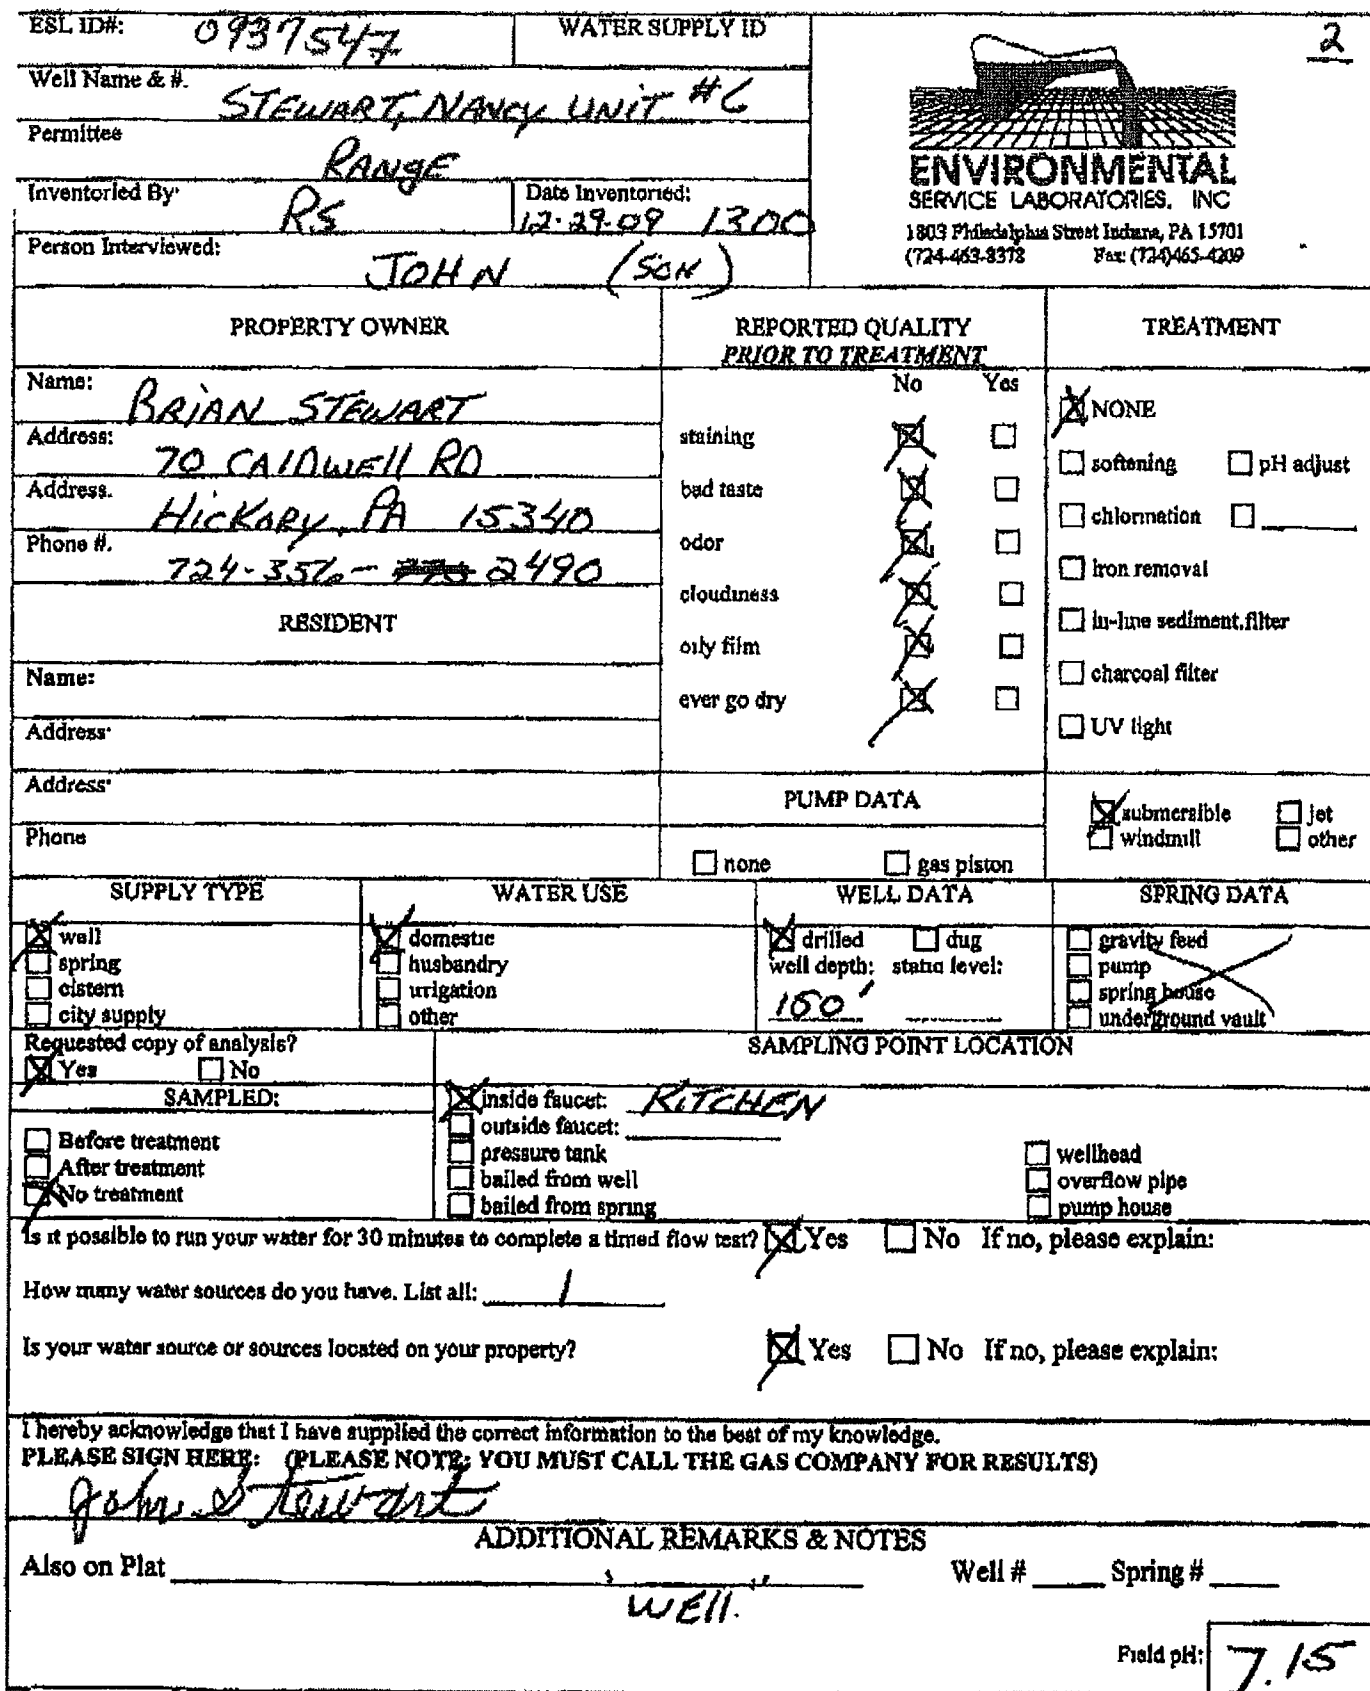 ESL ID#: 0937547 WATER SUPPLY ID
2
Well Name & #. STEWART, NANCY UNIT #6
Permittee RANGE
Inventoried By: RS Date Inventoried: 12.29.09 1300
Person Interviewed: JOHN (SON)
ENVIRONMENTAL
SERVICE LABORATORIES, INC
1803 Philadelphia Street Indiana, PA 15701
(724-463-8378 Fax: (724)465-4209
PROPERTY OWNER
Name: BRIAN STEWART
Address: 70 CALDWELL RD
Address. HICKORY, PA 15340
Phone #. 724-356- 2490
RESIDENT
Name:
Address:
Address:
Phone
REPORTED QUALITY
PRIOR TO TREATMENT
No Yes
staining
bad taste
odor
cloudiness
oily film
ever go dry
TREATMENT
NONE
softening pH adjust
chlorination
iron removal
in-line sediment.filter
charcoal filter
UV light
PUMP DATA
none gas piston
submersible jet
windmill other
SUPPLY TYPE
well
spring
cistern
city supply
WATER USE
domestic
husbandry
irrigation
other
WELL DATA
drilled dug
well depth: static level:
150'
SPRING DATA
gravity feed
pump
spring house
underground vault
Requested copy of analysis?
Yes No
SAMPLED:
Before treatment
After treatment
No treatment
SAMPLING POINT LOCATION
inside faucet: KITCHEN
outside faucet:
pressure tank
bailed from well
bailed from spring
wellhead
overflow pipe
pump house
Is it possible to run your water for 30 minutes to complete a timed flow test? Yes No If no, please explain:
How many water sources do you have. List all: 1
Is your water source or sources located on your property? Yes No If no, please explain:
I hereby acknowledge that I have supplied the correct information to the best of my knowledge.
PLEASE SIGN HERE: (PLEASE NOTE: YOU MUST CALL THE GAS COMPANY FOR RESULTS)
John Stewart
ADDITIONAL REMARKS & NOTES
Also on Plat Well # Spring #
"WELL"
Field pH: 7.15